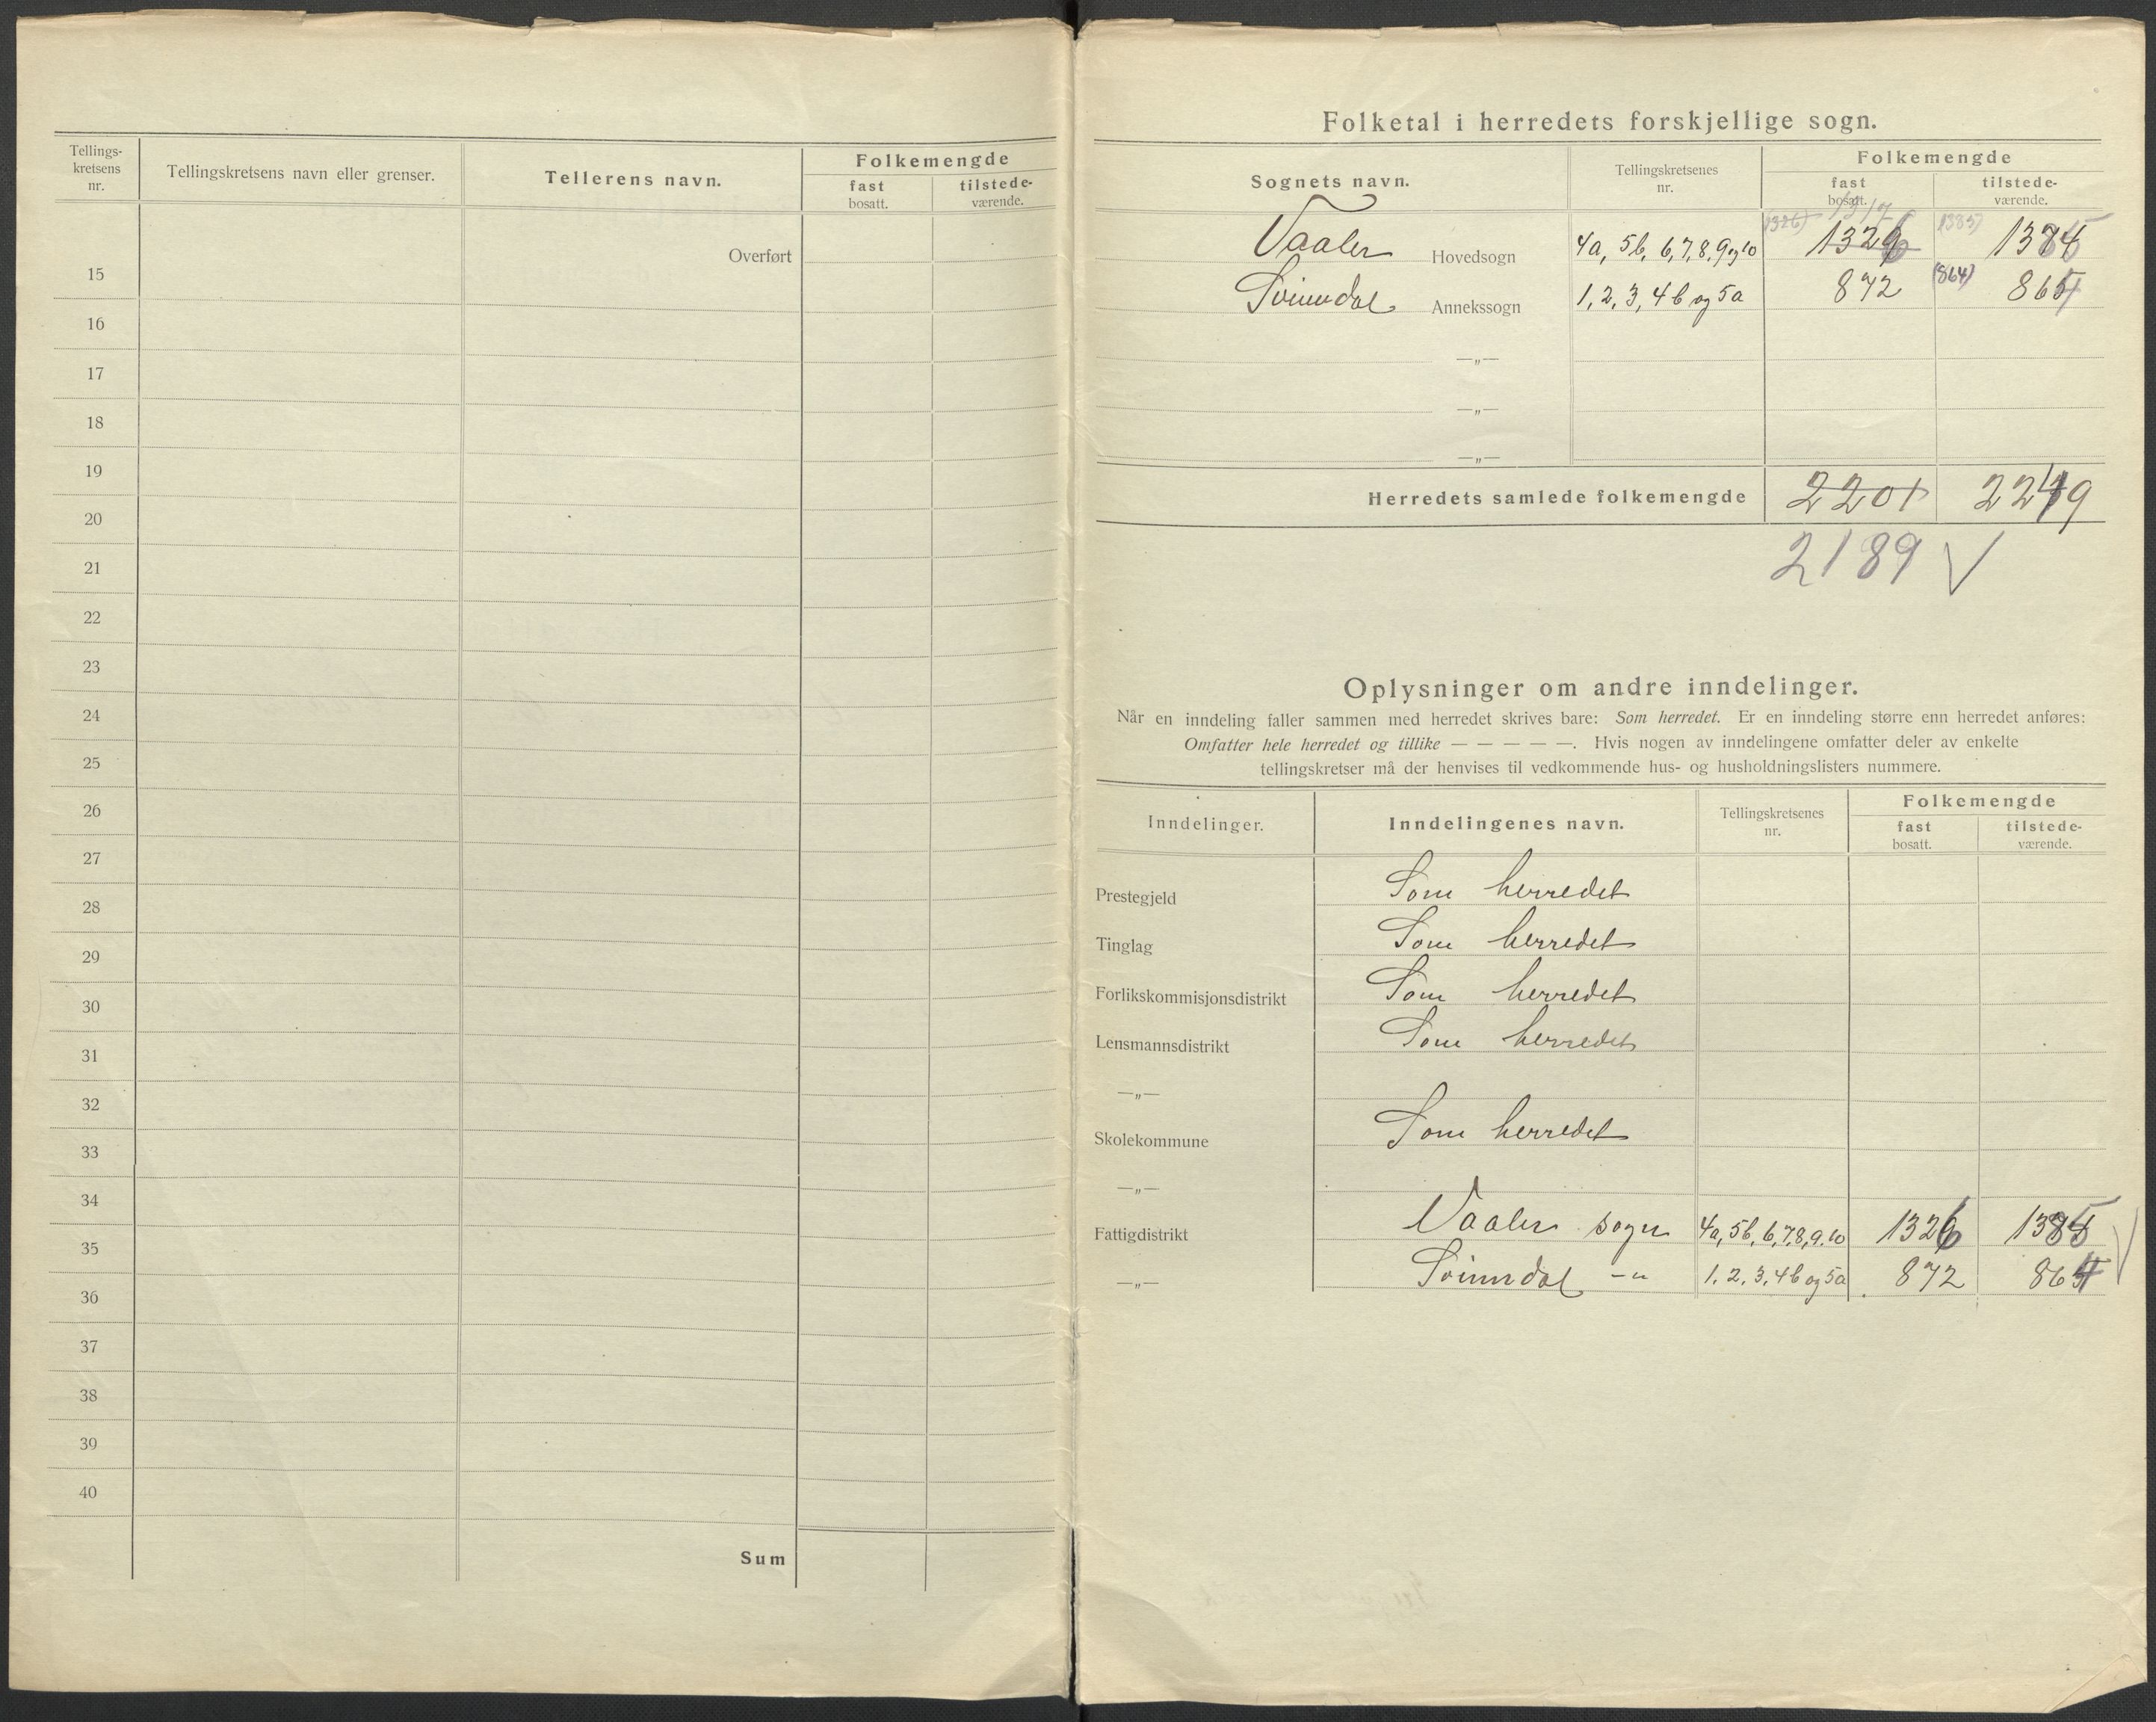 Tellings-
kretsens
nr.
Tellingskretsens navn eller grenser.
Tellerens navn.
Folkemengde
fast
bosatt.
tilstede-
værende.
Overført
15
16
17
18
19
20
21
22
23
24
25
26
27
28
29
30
31
32
33
34
35
36
37
38
39
40
Sum
Folketal i herredets forskjellige sogn.
Sognets navn.
Tellingskretsenes
nr.
Folkemengde
fast
bosatt.
tilstede-
værende.
1317
Vaaler Hovedsogn 4a, 5b, 6,7,8,9og10 (1326) 1326 (1385) 1385
Svinndal Annekssogn 1,2,3,4b og 5a 872 (864) 864
—„—
—„—
—„—
Herredets samlede folkemengde 2201 2249
2189 V
Oplysninger om andre inndelinger.
Når en inndeling faller sammen med herredet skrives bare: Som herredet. Er en inndeling større enn herredet anføres:
Omfatter hele herredet og tillike — — — — —. Hvis nogen av inndelingene omfatter deler av enkelte
tellingskretser må der henvises til vedkommende hus- og husholdningslisters nummere.
Inndelinger.
Inndelingenes navn.
Tellingskretsenes
nr.
Folkemengde
fast
bosatt.
tilstede-
værende.
Prestegjeld Som herredet
Tinglag Som herredet
Forlikskommisjonsdistrikt Som herredet
Lensmannsdistrikt Som herredet
—„—
Skolekommune Som herredet
—„—
Fattigdistrikt Vaaler sogn 4a, 5b, 6,7,8,9,10 1326 1385
—„— Svinndal –„ 1,2,3,4b og 5a 872 864